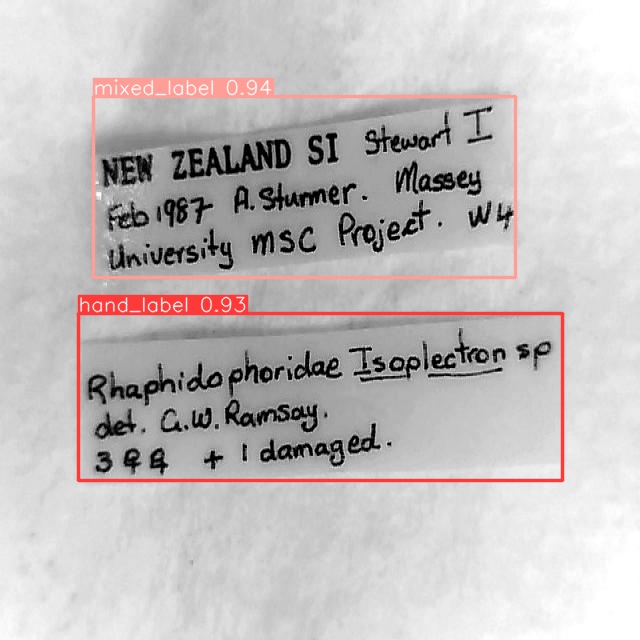 mixed_label 0.94
NEW ZEALAND SI Stewart I
Feb 1987 A. Sturmer. Massey
University MSC Project. W4
hand_label 0.93
Rhaphidophoridae Isoplectron sp
det. G.W. Ramsay.
3 ♀♀ + 1 damaged.